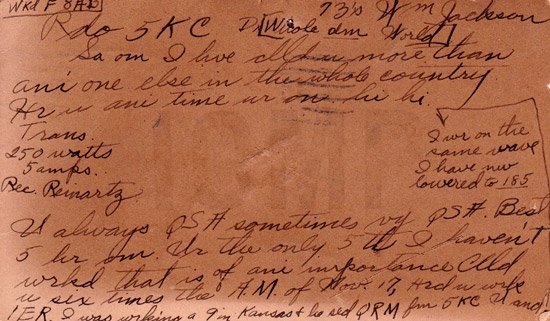 Wkd F 8AB 73's Wm Jackson
Rdo 5KC DX Whole dm World
Sa om I hve clld u more than
ani one else in the whole country
Hr u ani time ur on hi hi
Trans.
250 watts
5 amps.
Rec. Reinartz
I wr on the
same wave
I have nw
lowered to 185
U always QSA sometimes vy QSA. Best
5 hr om. Ur the only 5th I haven't
wrkd that is of ani importance Clld
u six times the A.M. of Nov. 17, Hrd u wrk
1ER. I was wrking a 9 in Kansas & he sed QRM fm 5KC U and